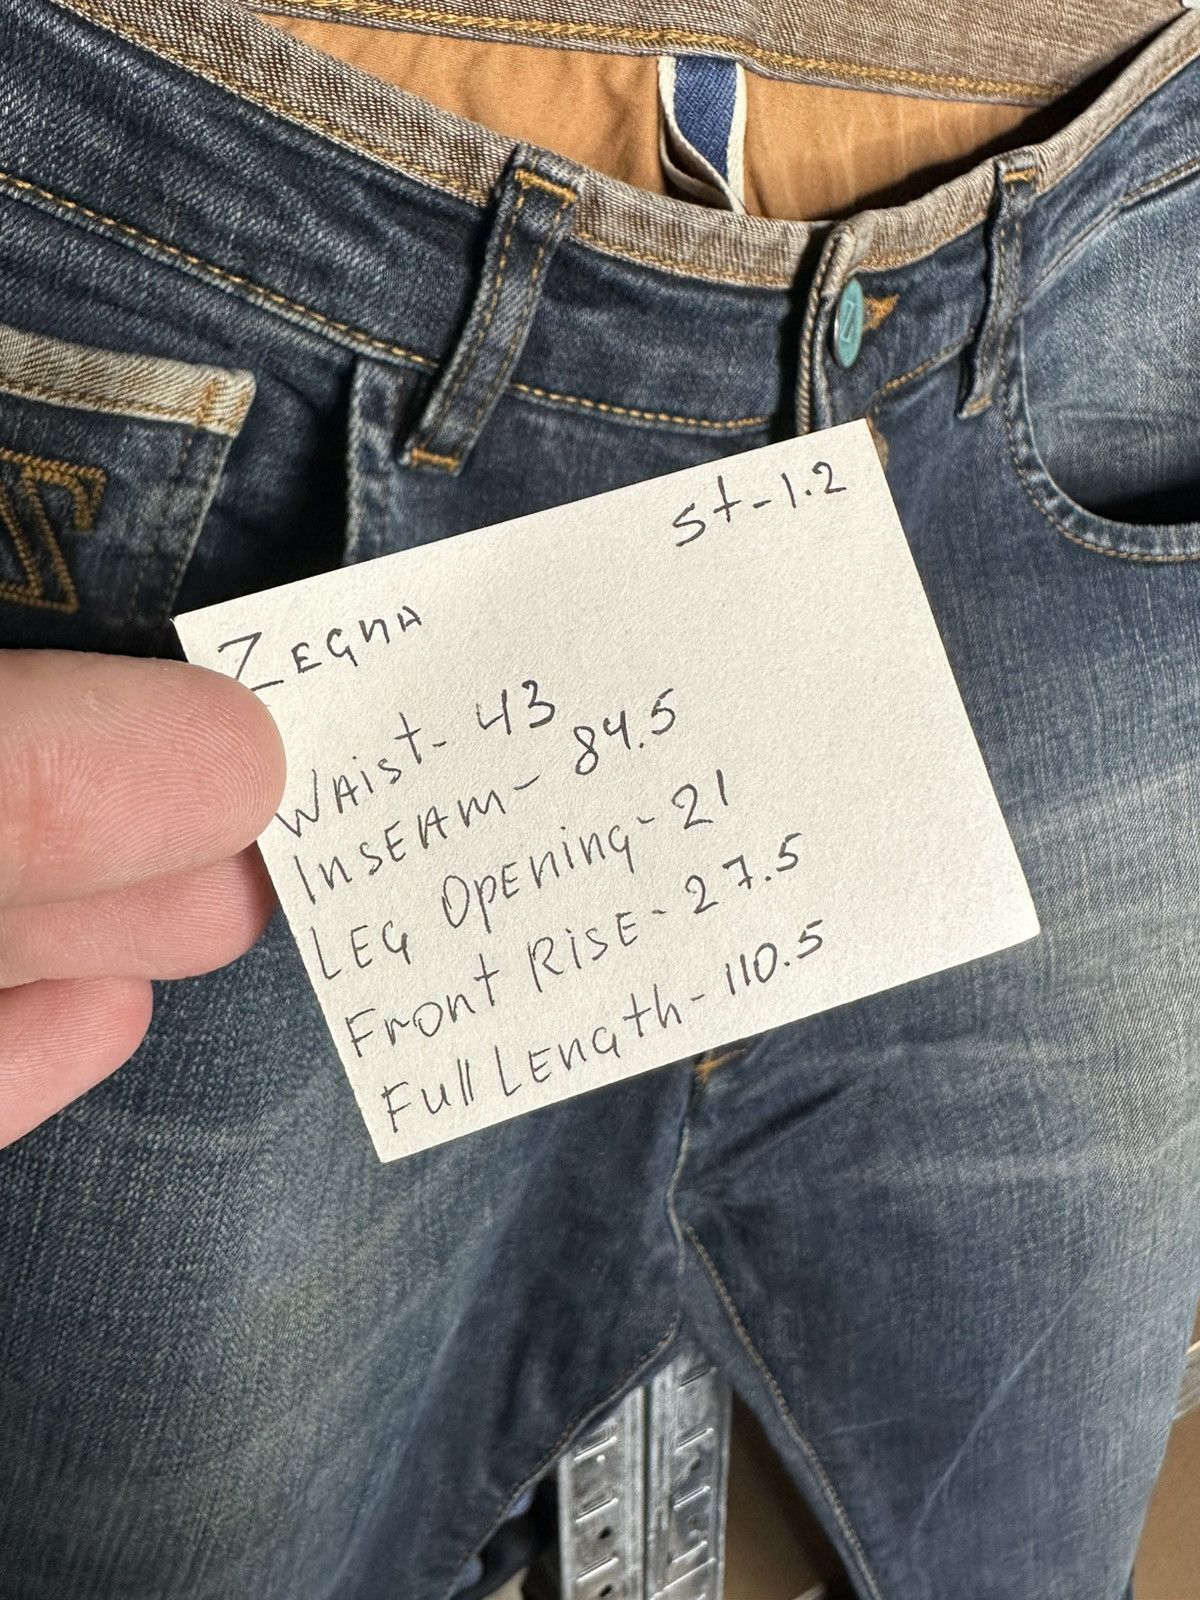 St-1.2
ZEGNA
WAist- 43
INSEAM- 84.5
LEG OpENiNG- 21
FRONt RiSE- 27.5
Full LENGth- 110.5